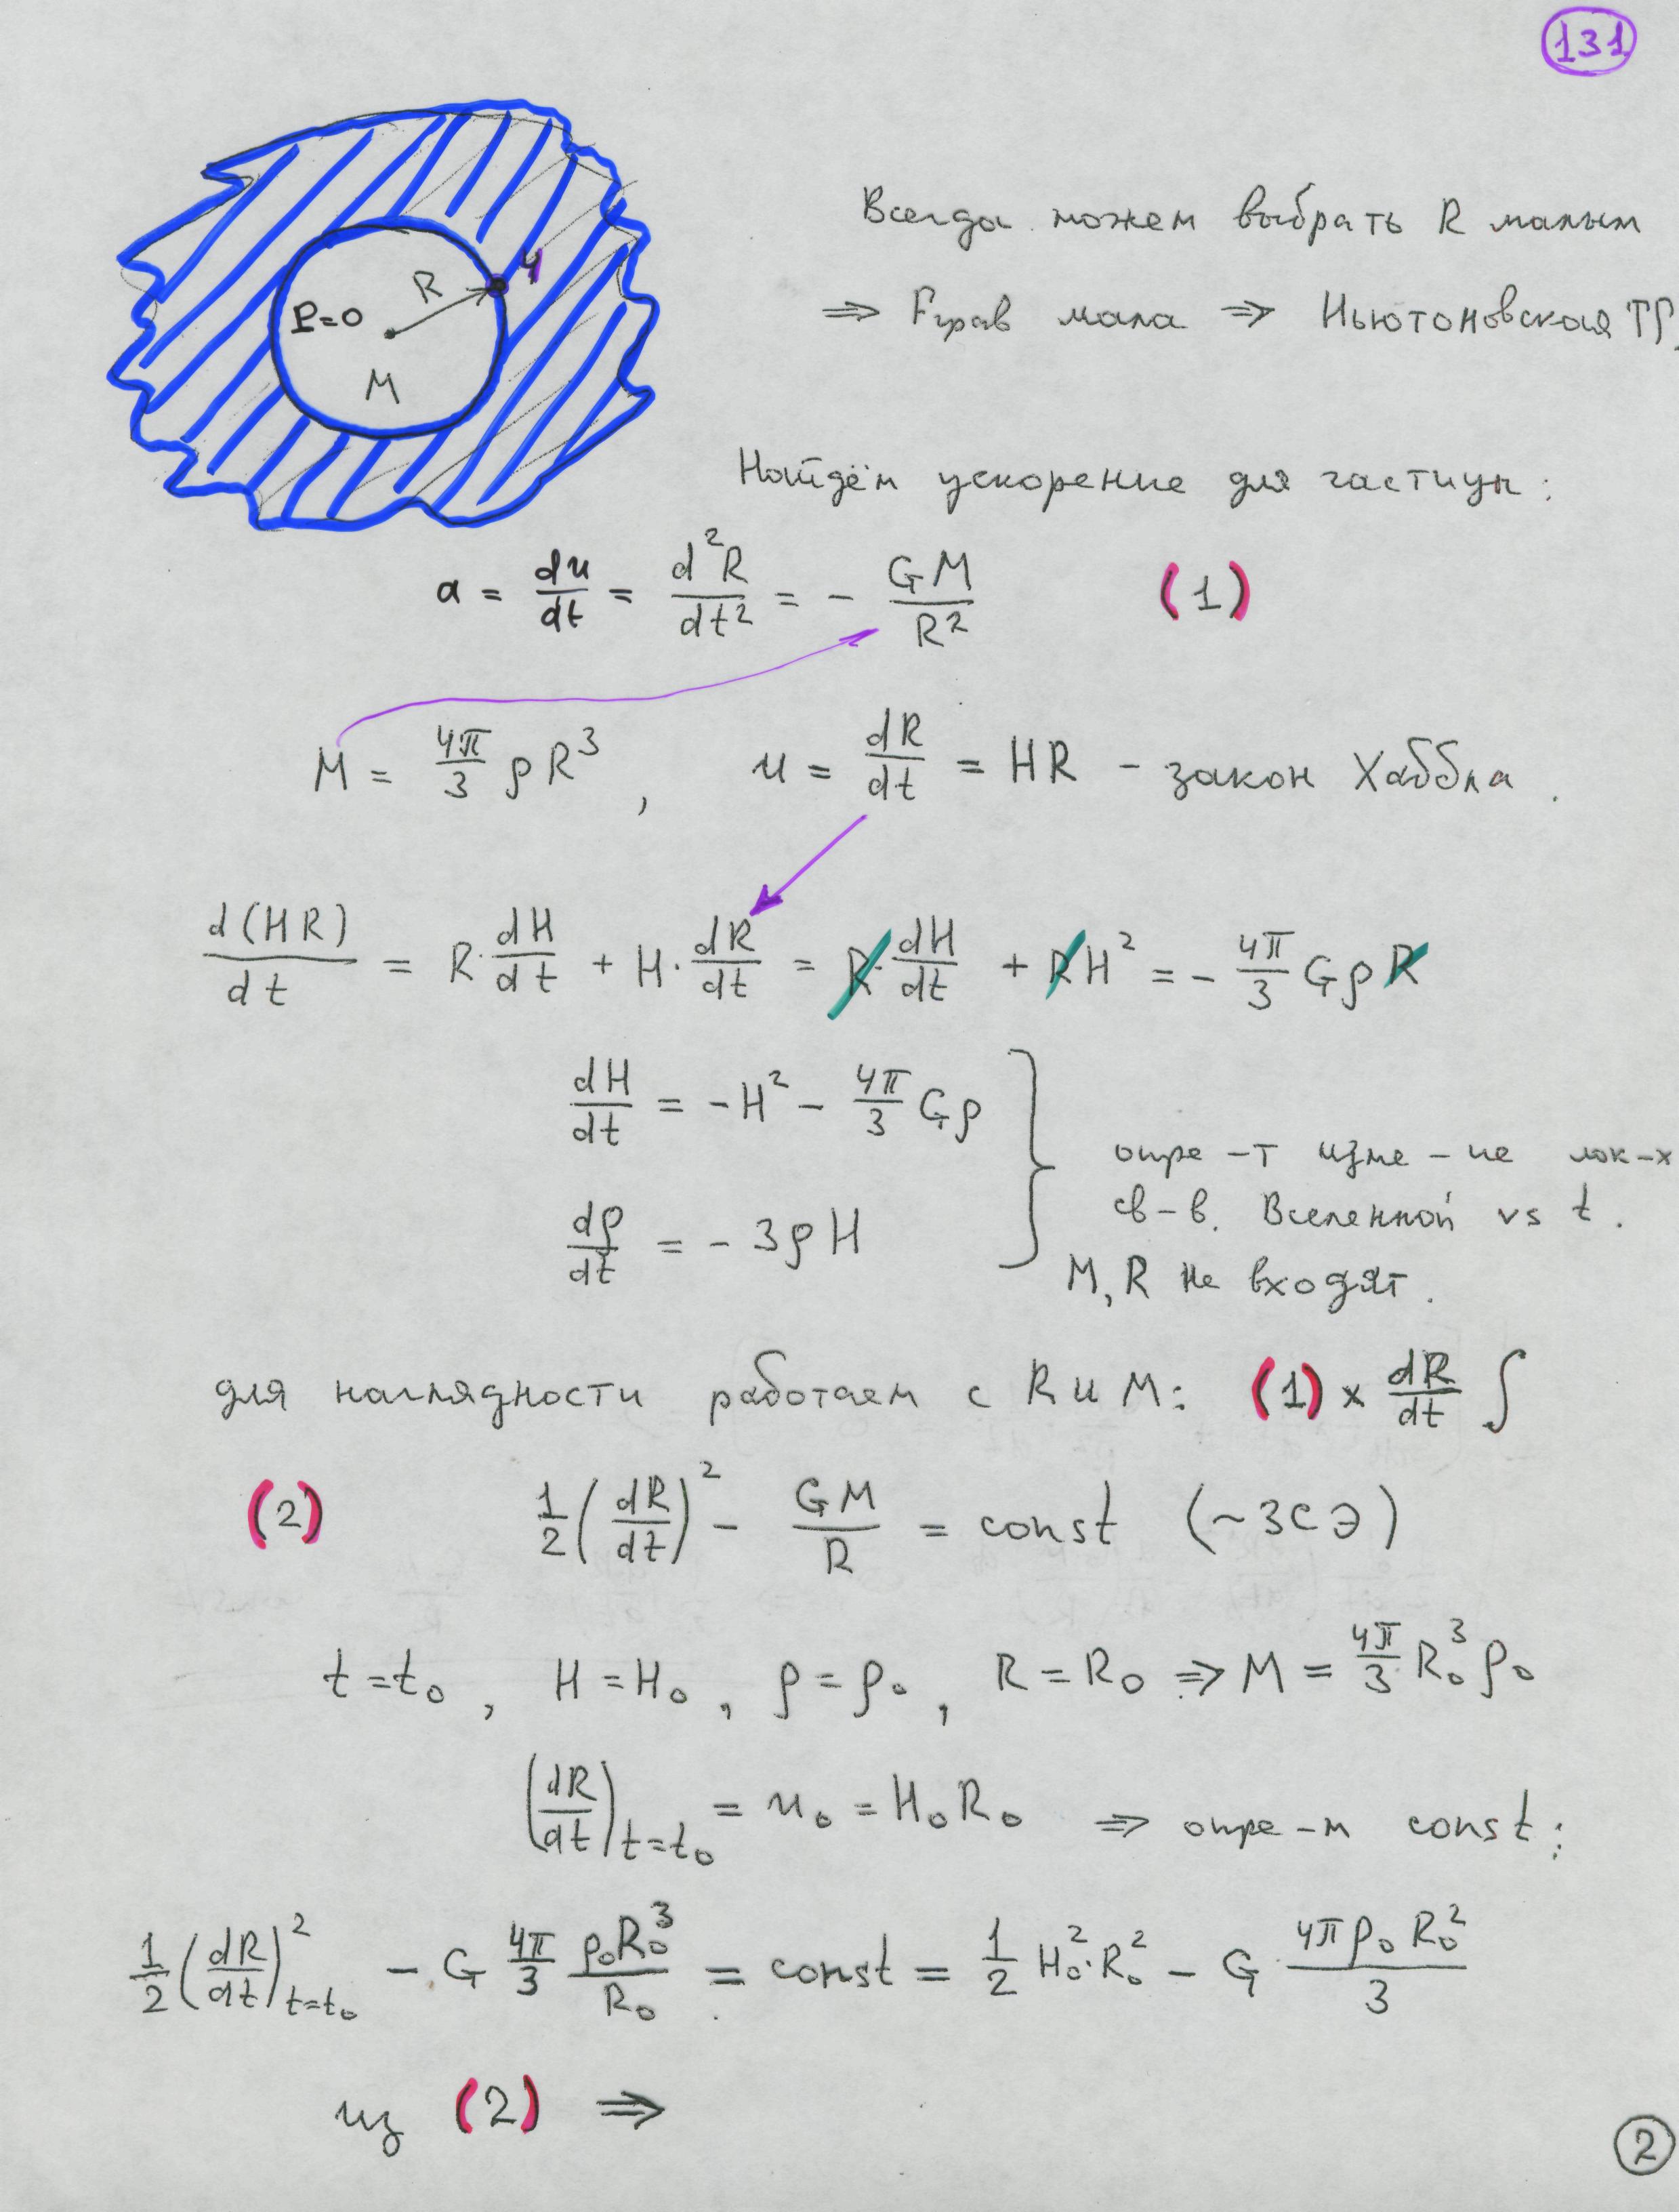 131
Ч
R
P=0
M
Всегда можем выбрать R малым
⇒ Fграв мала ⇒ Ньютоновская ТГ.
Найдём ускорение для частицы:
a = du/dt = d²R/dt² = - GM/R² (1)
M = 4π/3 ρR³, u = dR/dt = HR - закон Хаббла.
d(HR)/dt = R·dH/dt + H·dR/dt = R·dH/dt + RH² = - 4π/3 GρR
dH/dt = -H² - 4π/3 Gρ
dρ/dt = - 3ρH
опре-т изме-ие лок-х
св-в. Вселенной vs t.
M, R не входят.
для наглядности работаем с R и M: (1) x dR/dt ∫
(2) 1/2 (dR/dt)² - GM/R = const (~ЗСЭ)
t = t₀, H = H₀, ρ = ρ₀, R = R₀ ⇒ M = 4π/3 R₀³ρ₀
(dR/dt)t=t₀ = u₀ = H₀R₀ ⇒ опре-м const:
1/2 (dR/dt)²t=t₀ - G 4π/3 ρ₀R₀³/R₀ = const = 1/2 H₀²·R₀² - G 4πρ₀R₀²/3
из (2) ⇒
2